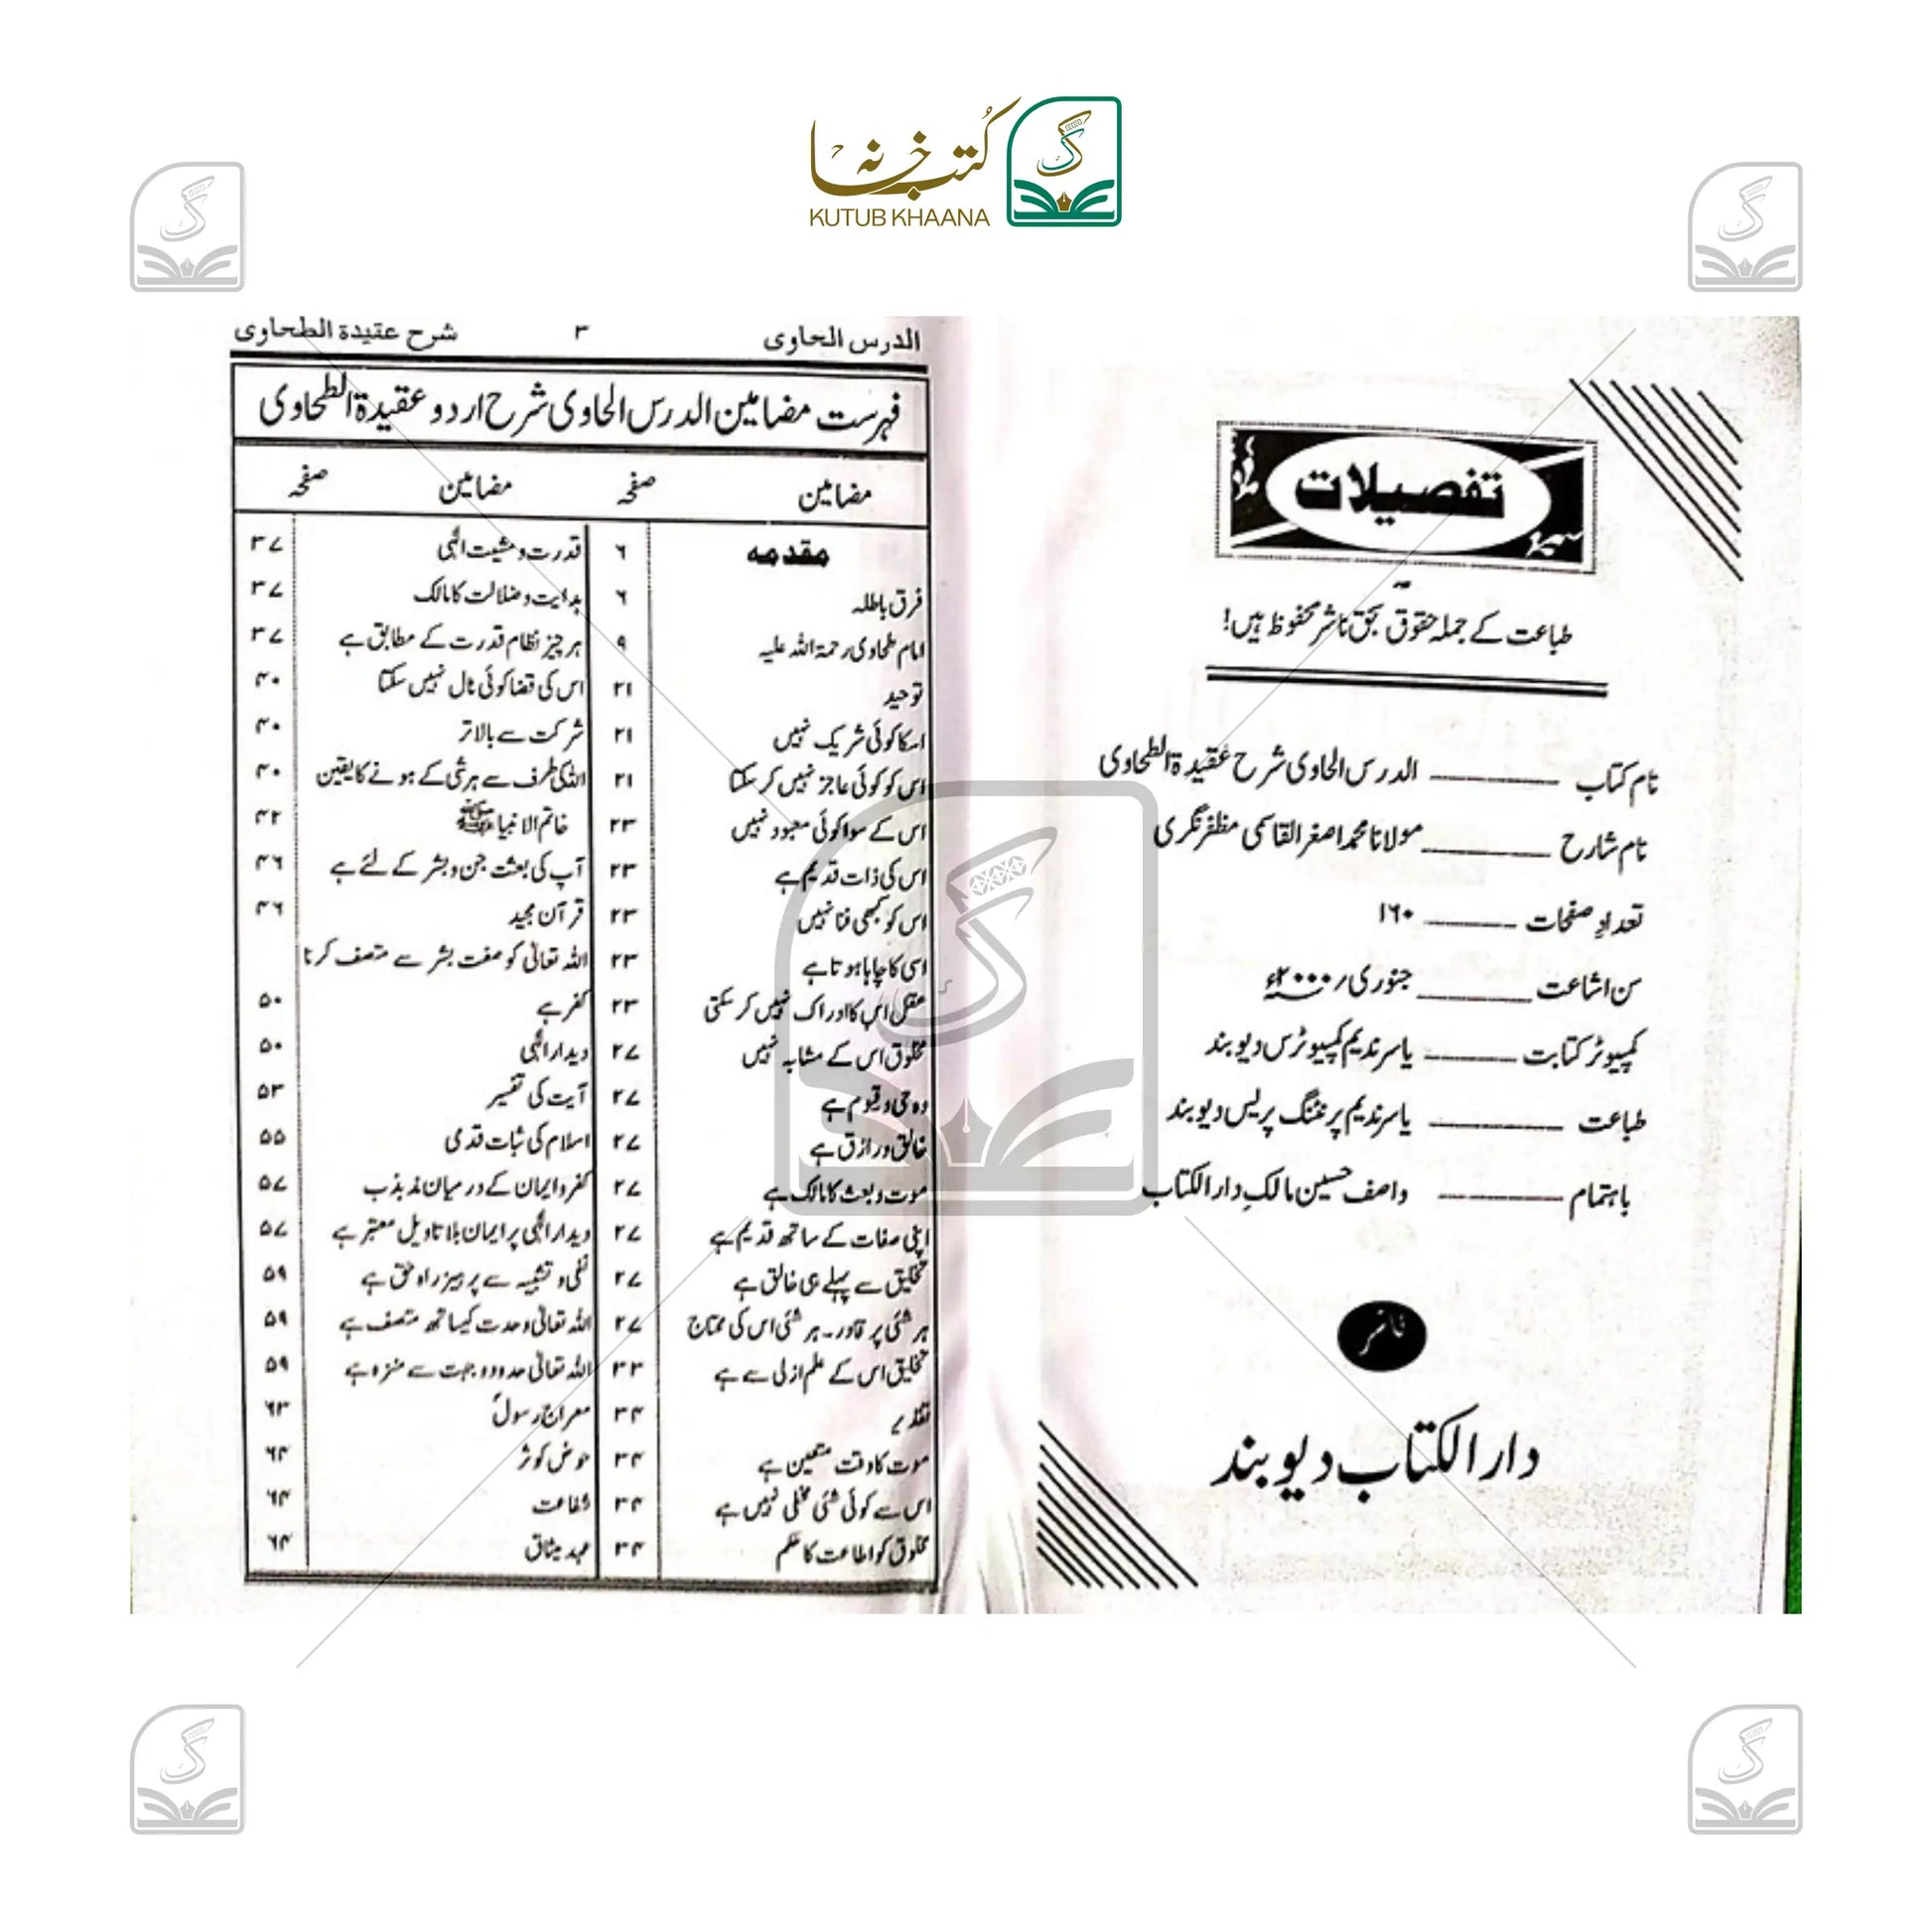 کُتب خانہ
KUTUB KHAANA
تفصیلات
طباعت کے جملہ حقوق بحق ناشر محفوظ ہیں!
نام کتاب ــــــــ الدرس الحاوی شرح عقیدۃ الطحاوی
نام شارح ــــــــ مولانا محمد اصغر القاسمی مظفرنگری
تعداد صفحات ــــــــ ۱۶۰
سن اشاعت ــــــــ جنوری ؍ ۲۰۰۰ء
کمپیوٹر کتابت ــــــــ یاسر ندیم کمپیوٹرس دیوبند
طباعت ــــــــ یاسر ندیم پرنٹنگ پریس دیوبند
باہتمام ــــــــ واصف حسین مالک دار الکتاب
ناشر
دار الکتاب دیوبند
الدرس الحاوی ۳ شرح عقیدۃ الطحاوی
فہرست مضامین الدرس الحاوی شرح اردو عقیدۃ الطحاوی
مضامین صفحہ مضامین صفحہ
مقدمہ ۶
فرق باطلہ ۶
امام طحاوی رحمۃ اللہ علیہ ۹
توحید ۲۱
اسکا کوئی شریک نہیں ۲۱
اس کو کوئی عاجز نہیں کر سکتا ۲۱
اس کے سوا کوئی معبود نہیں ۲۳
اس کی ذات قدیم ہے ۲۳
اس کو کبھی فنا نہیں ۲۳
اسی کا چاہا ہوتا ہے ۲۳
عقل اس کا ادراک نہیں کر سکتی ۲۳
مخلوق اس کے مشابہ نہیں ۲۷
وہ حی و قیوم ہے ۲۷
خالق و رازق ہے ۲۷
موت و بعث کا مالک ہے ۲۷
اپنی صفات کے ساتھ قدیم ہے ۲۷
تخلیق سے پہلے ہی خالق ہے ۲۷
ہر شئی پر قادر ۔ ہر شئی اس کی محتاج ۲۷
تخلیق اس کے علم ازلی سے ہے ۳۳
تقدیر ۳۴
موت کا وقت متعین ہے ۳۴
اس سے کوئی شئی مخفی نہیں ہے ۳۴
مخلوق کو اطاعت کا حکم ۳۴
قدرت و مشیت الٰہی ۳۷
ہدایت و ضلالت کا مالک ۳۷
ہر چیز نظام قدرت کے مطابق ہے ۳۷
اس کی قضا کوئی ٹال نہیں سکتا ۴۰
شرکت سے بالاتر ۴۰
اللہ کی طرف سے ہر شئی کے ہونے کا یقین ۴۰
خاتم الانبیا ﷺ ۴۲
آپ کی بعثت جن و بشر کے لئے ہے ۴۶
قرآن مجید ۴۶
اللہ تعالیٰ کو صفت بشر سے متصف کرنا
کفر ہے ۵۰
دیدار الٰہی ۵۰
آیت کی تفسیر ۵۳
اسلام کی ثبات قدمی ۵۵
کفر و ایمان کے درمیان مذبذب ۵۷
دیدار الٰہی پر ایمان بلا تاویل معتبر ہے ۵۷
نفی و تشبیہ سے پرہیز راہ حق ہے ۵۹
اللہ تعالیٰ وحدت کیساتھ متصف ہے ۵۹
اللہ تعالیٰ حدود و جہت سے منزہ ہے ۵۹
معراج رسولؐ ۶۳
حوض کوثر ۶۴
شفاعت ۶۴
عہد میثاق ۶۴